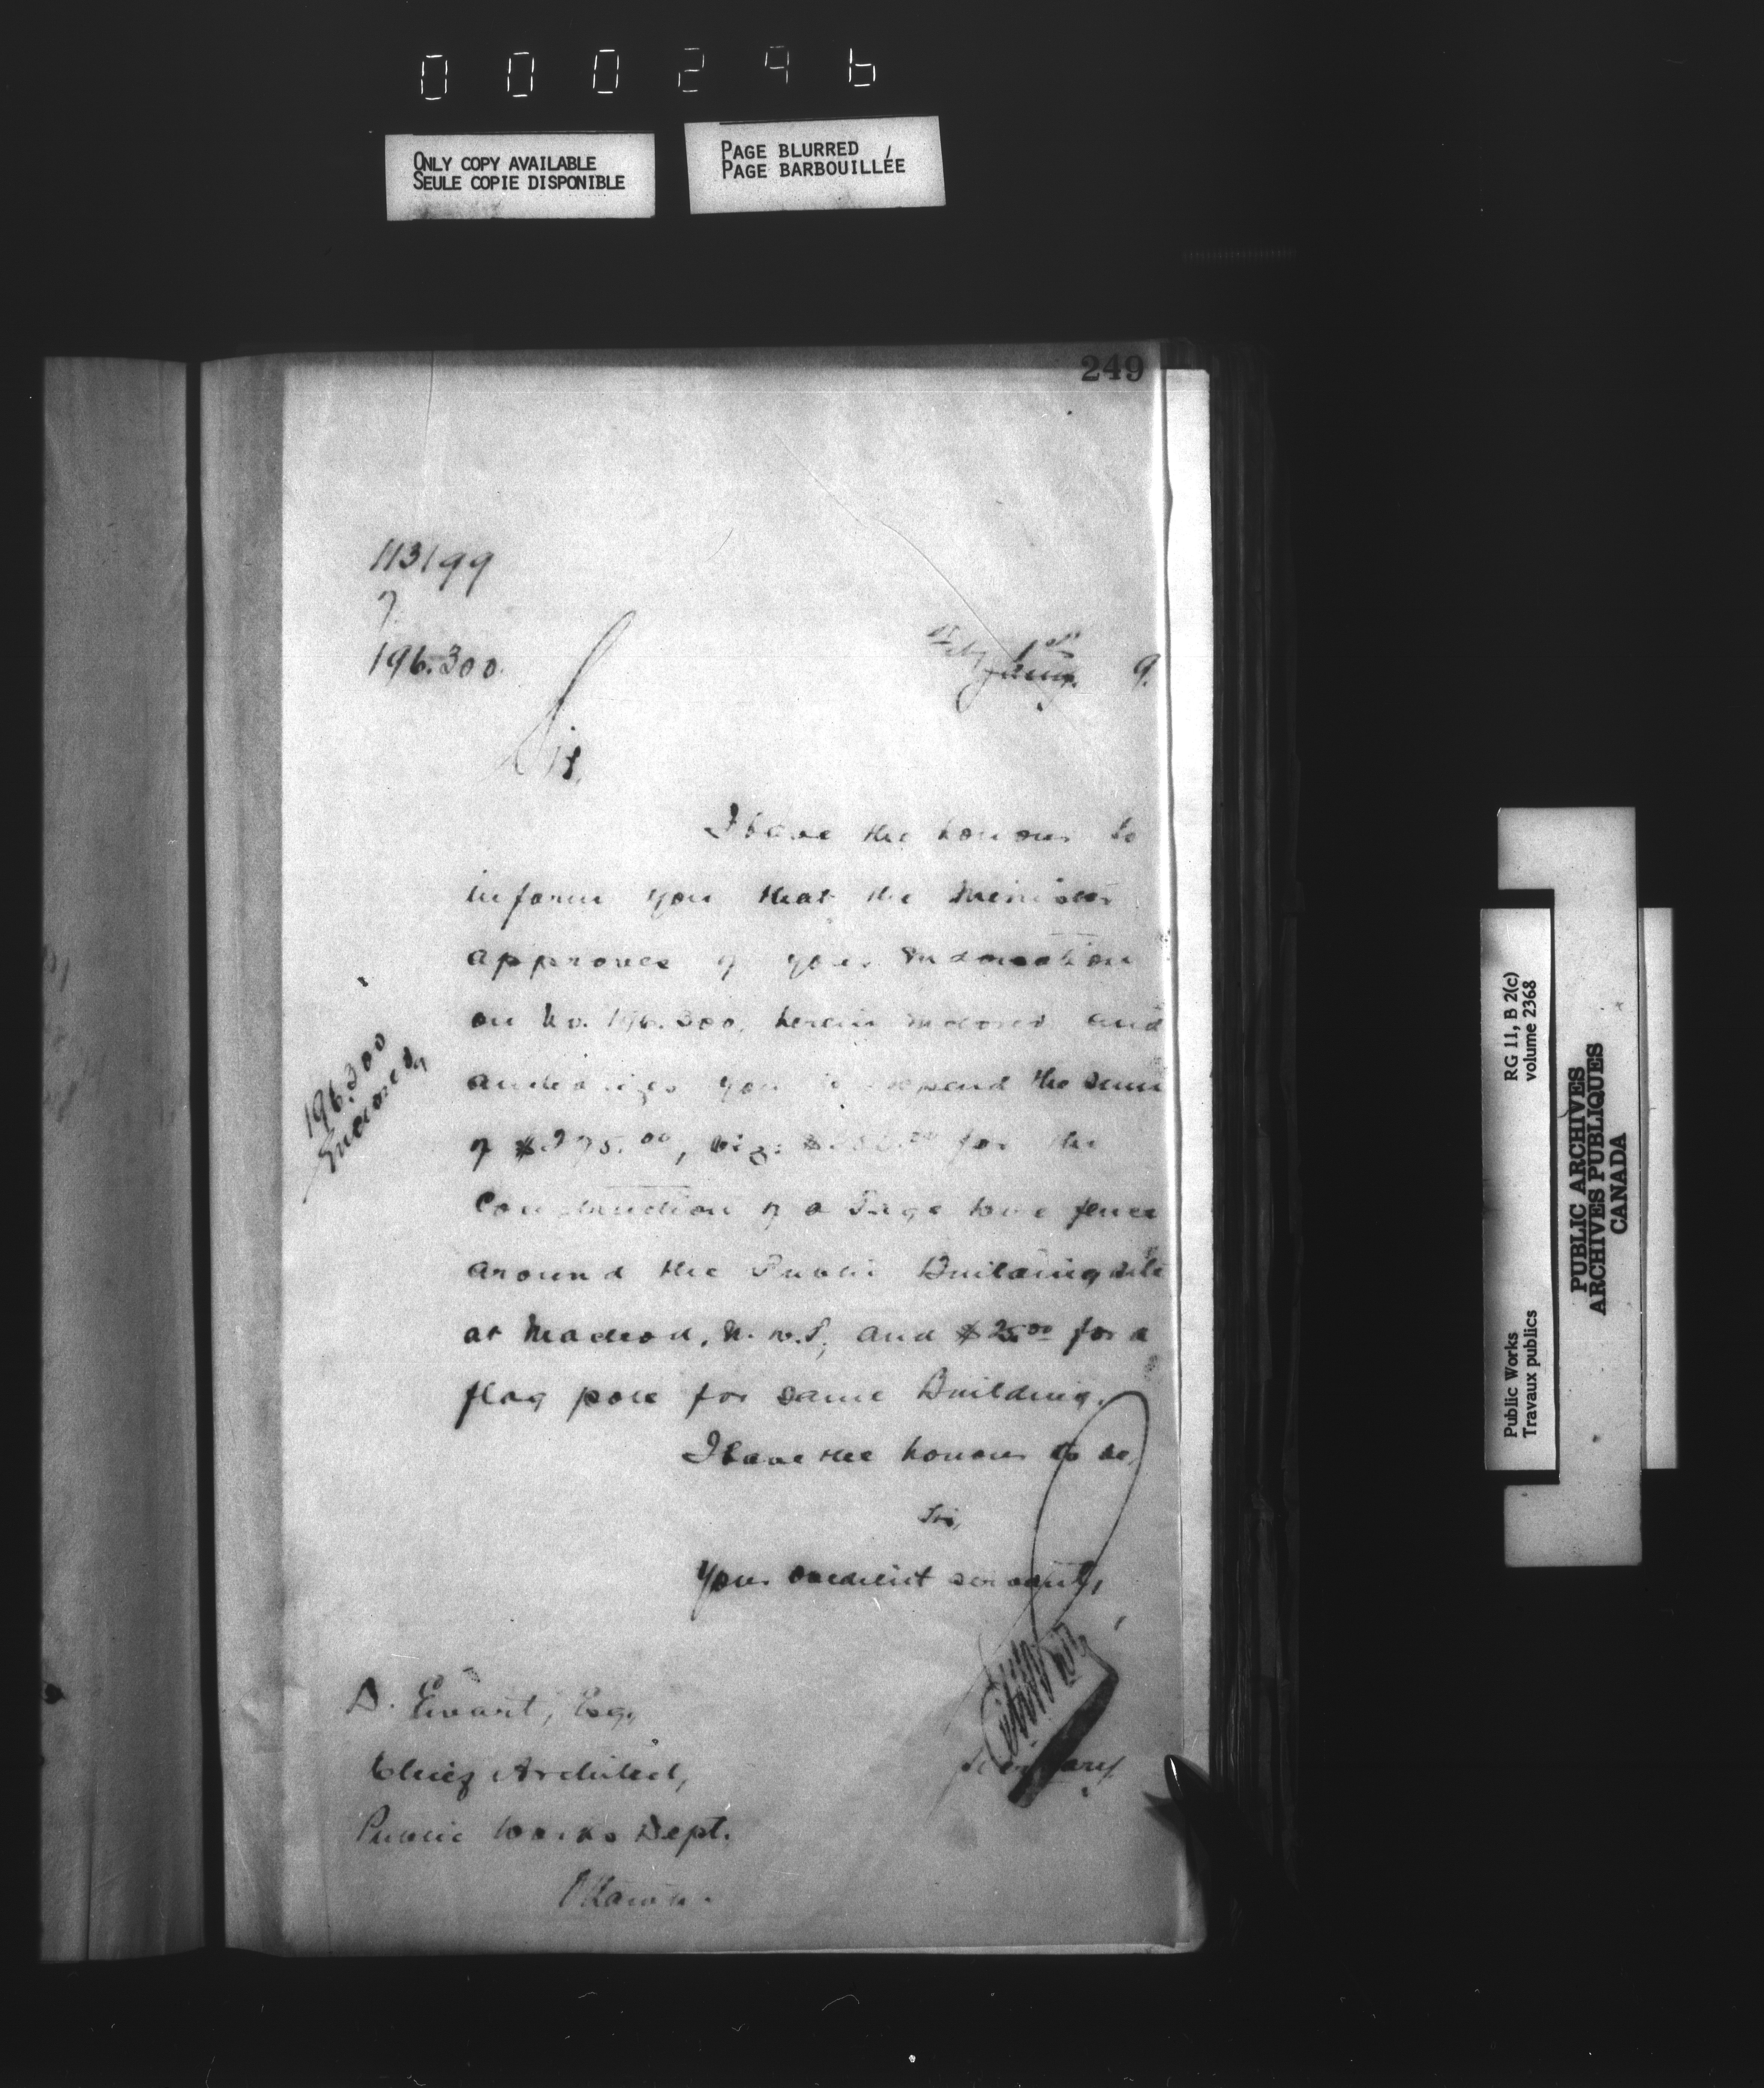 000296
ONLY COPY AVAILABLE
SEULE COPIE DISPONIBLE
PAGE BLURRED
PAGE BARBOUILLÉE
249
113199
196.300.
Feby 1st
Jany. 9.
Sir,
I have the honour to
inform you that the Minister
approves of your
on No. 196.300, herein enclosed and
authorizes you to expend the sum
of $275.00, viz: for the
Construction of a Page wire fence
around the Public Building site
at Macleod, N.W.T, and $25.00 for a
flag pole for same Building.
I have the honour to be,
Sir,
Your obedient servant,
Secretary.
196.300
Enclosed
D. Ewart, Esq.,
Chief Architect,
Public Works Dept.
Ottawa.
RG 11, B 2(c)
volume 2368
Public Works
Travaux publics
PUBLIC ARCHIVES
ARCHIVES PUBLIQUES
CANADA